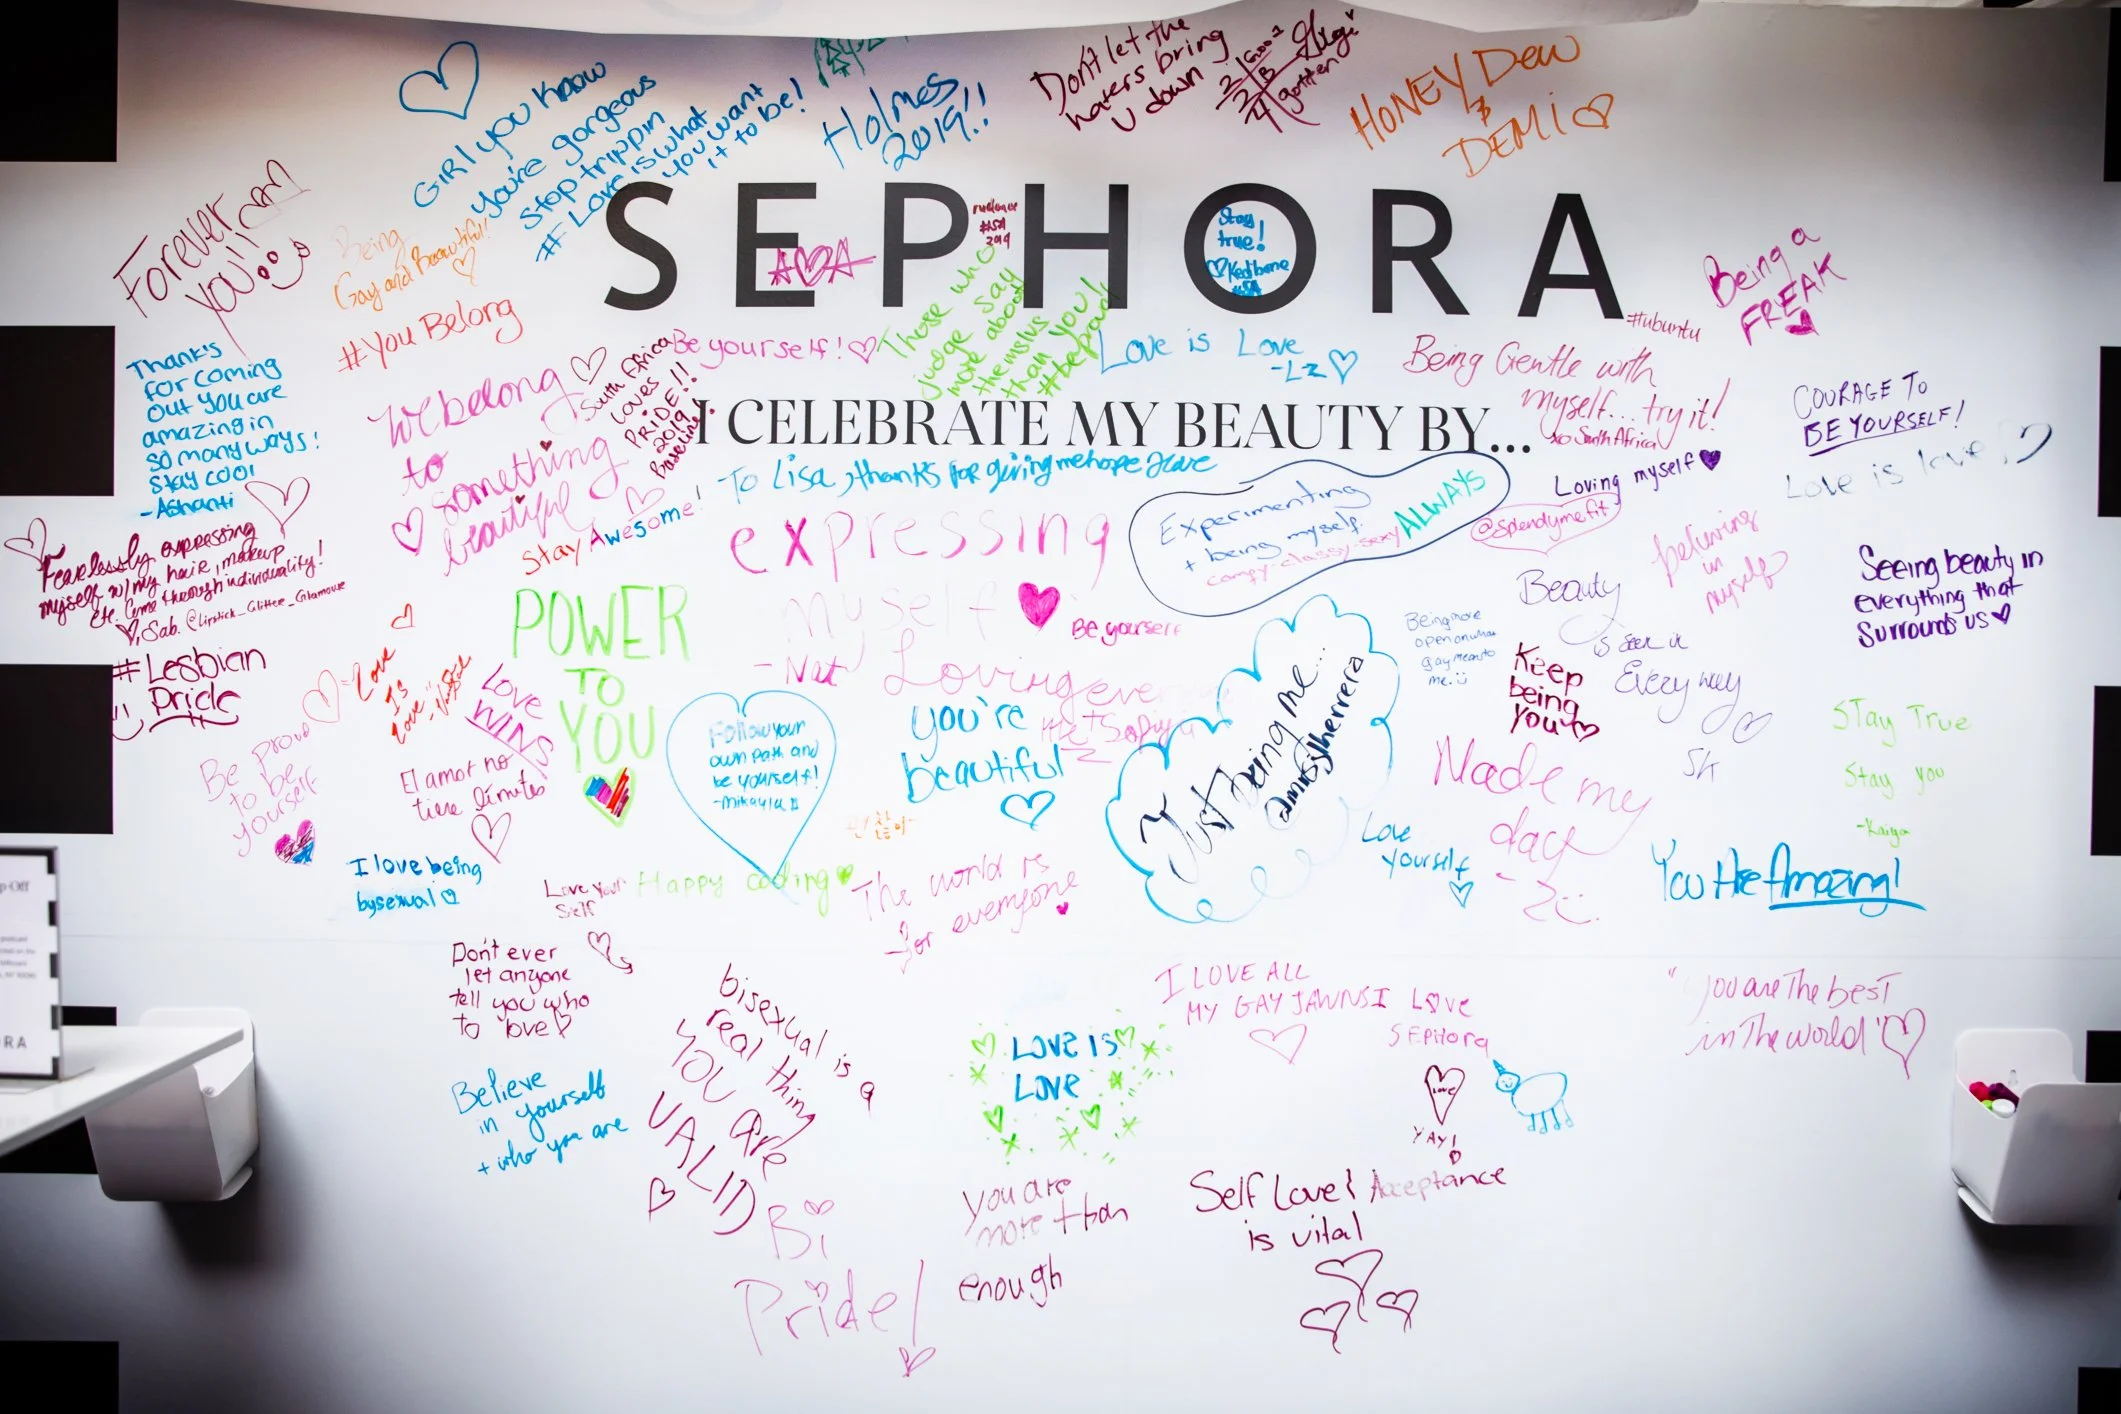 GIRL you know
You're gorgeous
stop trippin
#Love is what
you want
it to be!
Holmes
2019!!
Don't let the
haters bring
u down
HONEY Dew
&
DEMI
SEPHORA
Forever
you!!
Being
Gay and Beautiful!
#You Belong
#ISA
2019
Stay
true!
Those who
judge say
more about
themslus
than you!
#beproud
Being a
FREAK
#ubuntu
Thank's
for coming
out you are
amazing in
so many ways!
stay cool
-Ashanti
We belong
to
something
beautiful
South Africa
Loves
PRIDE!!
2019
Be yourself!
Love is Love
-LZ
Being Gentle with
myself... try it!
xo South Africa
COURAGE TO
BE YOURSELF!
I CELEBRATE MY BEAUTY BY...
To Lisa, thank's for giving me hope
Loving myself
@splendymefit
Love is love
Stay Awesome!
expressing
myself
-Nat
Experimenting
+ being myself.
comfy-classy-sexy ALWAYS
believing
in
myself
Seeing beauty in
everything that
Surrounds us
Fearlessly expressing
myself w/ my hair, makeup
etc. Come through individuality!
Sab. @Lipstick_Glitter_Glamour
#Lesbian
Pride
POWER
TO
YOU
Be yourself
Being more
open on what
gay means to
me.
Beauty
is seen in
Every way
SK
Keep
being
You
Love
Is
Love
LOVE
WINS
Loving
you're
beautiful
Follow your
own path and
be yourself!
-Mikayla
Just being me...
@mrsjherrera
Stay True
Stay you
-Kaiya
Be proud
to be
yourself
El amor no
tiene límites
Made my
day
Love
yourself
You Are Amazing!
I love being
bysexual
Love your
self
Happy coding
The world is
for everyone
Don't ever
let anyone
tell you who
to love
bisexual is a
real thing
YOU are
VALID
I LOVE ALL
MY GAY JAWNS
I LOVE
SEPHORA
LOVE
YAY!
"you are The best
in The world"
LOVE IS
LOVE
Believe
in yourself
+ who you are
Self Love & Acceptance
is vital
You are
more than
enough
Bi
Pride!